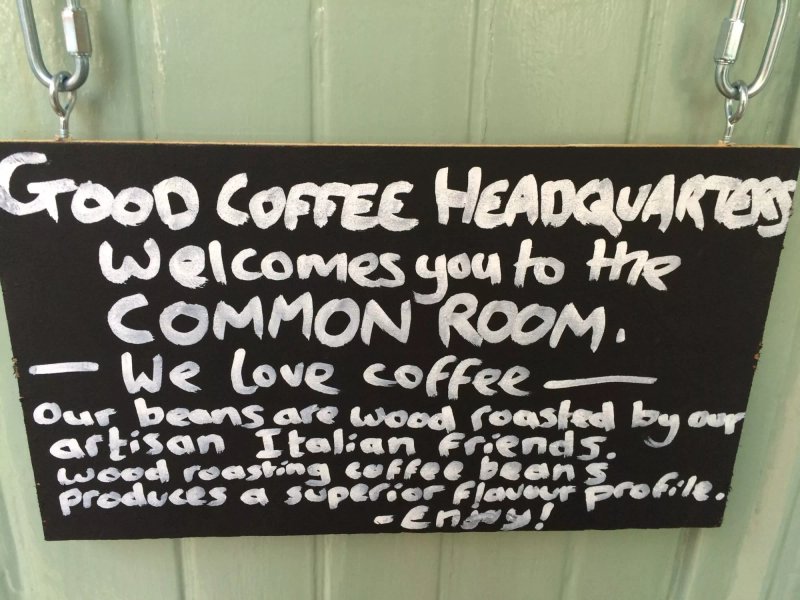 GOOD COFFEE HEADQUARTERS
Welcomes you to the
COMMON ROOM.
— We love coffee —
Our beans are wood roasted by our
artisan Italian Friends.
Wood roasting coffee beans
produces a superior flavour profile.
- Enjoy!